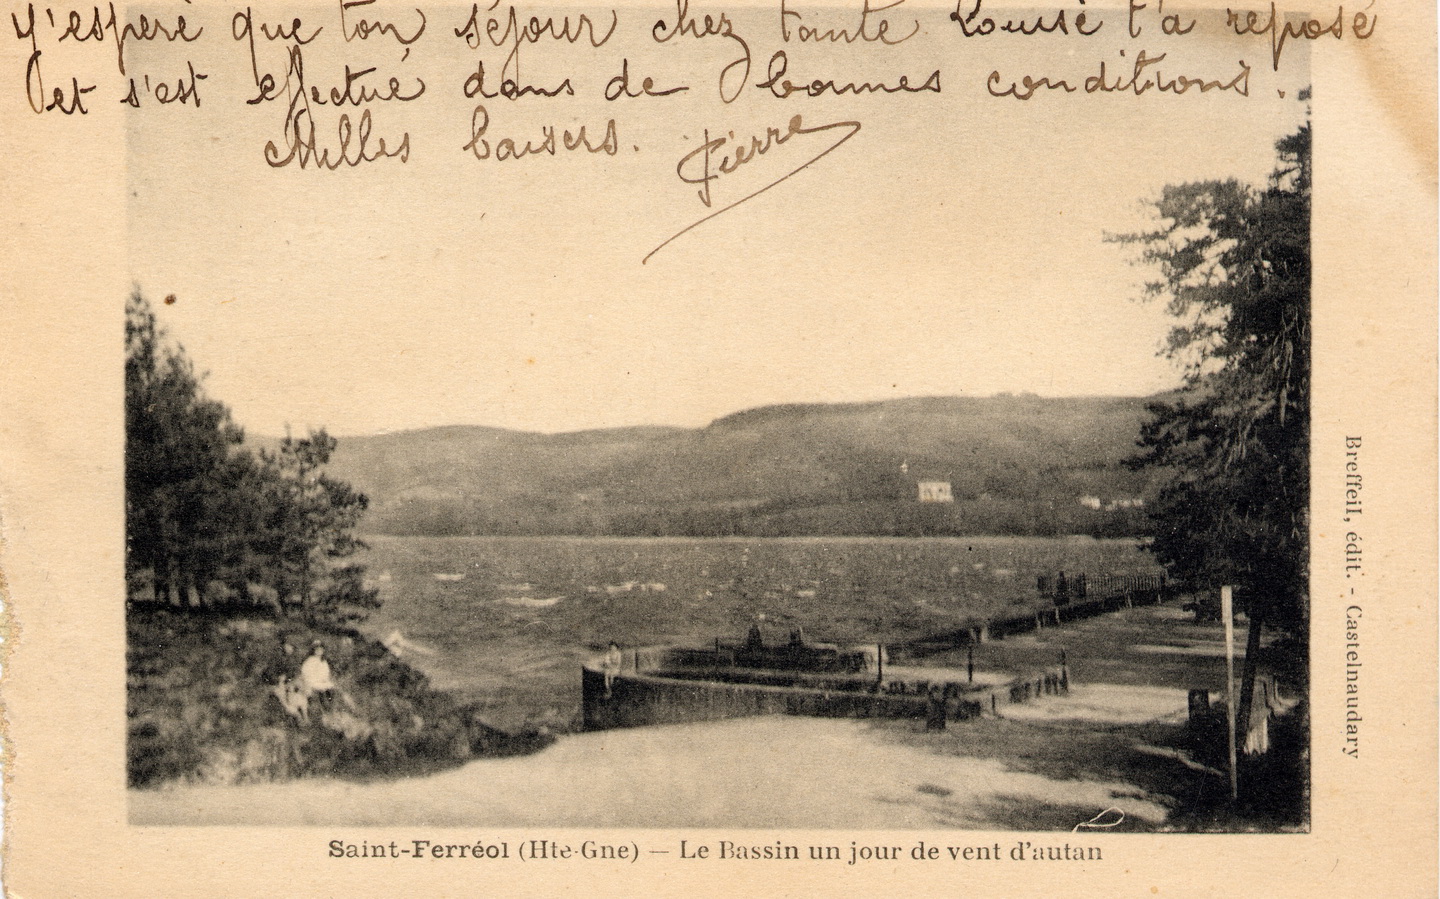 J'espère que ton séjour chez tante Louise t'a reposé
et s'est effectué dans de bonnes conditions.
Milles baisers. Pierre
Saint-Ferréol (Hte-Gne) — Le Bassin un jour de vent d'autan
Breffeil, édit. - Castelnaudary